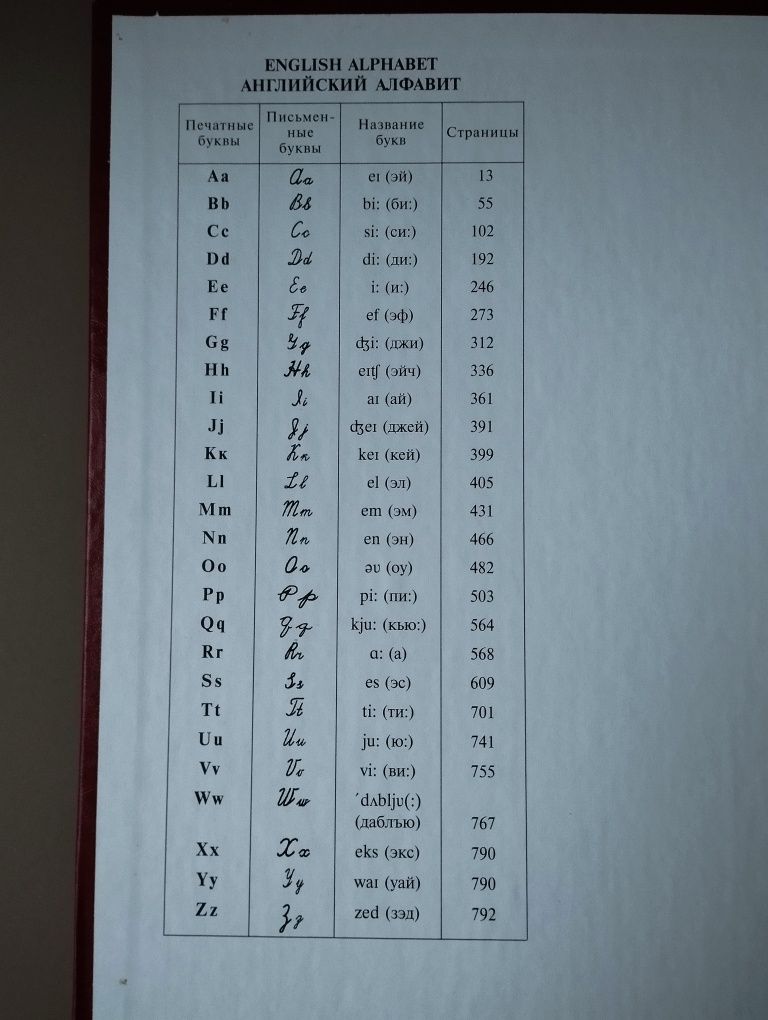 ENGLISH ALPHABET
АНГЛИЙСКИЙ АЛФАВИТ
Печатные буквы Письмен-ные буквы Название букв Страницы
Aa Aa eɪ (эй) 13
Bb Bb bi: (би:) 55
Cc Cc si: (си:) 102
Dd Dd di: (ди:) 192
Ee Ee i: (и:) 246
Ff Ff ef (эф) 273
Gg Gg ʤi: (джи) 312
Hh Hh eɪʧ (эйч) 336
Ii Ii aɪ (ай) 361
Jj Jj ʤeɪ (джей) 391
Kк Kk keɪ (кей) 399
Ll Ll el (эл) 405
Mm Mm em (эм) 431
Nn Nn en (эн) 466
Oo Oo əʊ (оу) 482
Pp Pp pi: (пи:) 503
Qq Qq kju: (кью:) 564
Rr Rr ɑ: (а) 568
Ss Ss es (эс) 609
Tt Tt ti: (ти:) 701
Uu Uu ju: (ю:) 741
Vv Vv vi: (ви:) 755
Ww Ww ′dʌblju(:)
(даблъю) 767
Xx Xx eks (экс) 790
Yy Yy waɪ (уай) 790
Zz Zz zed (зэд) 792